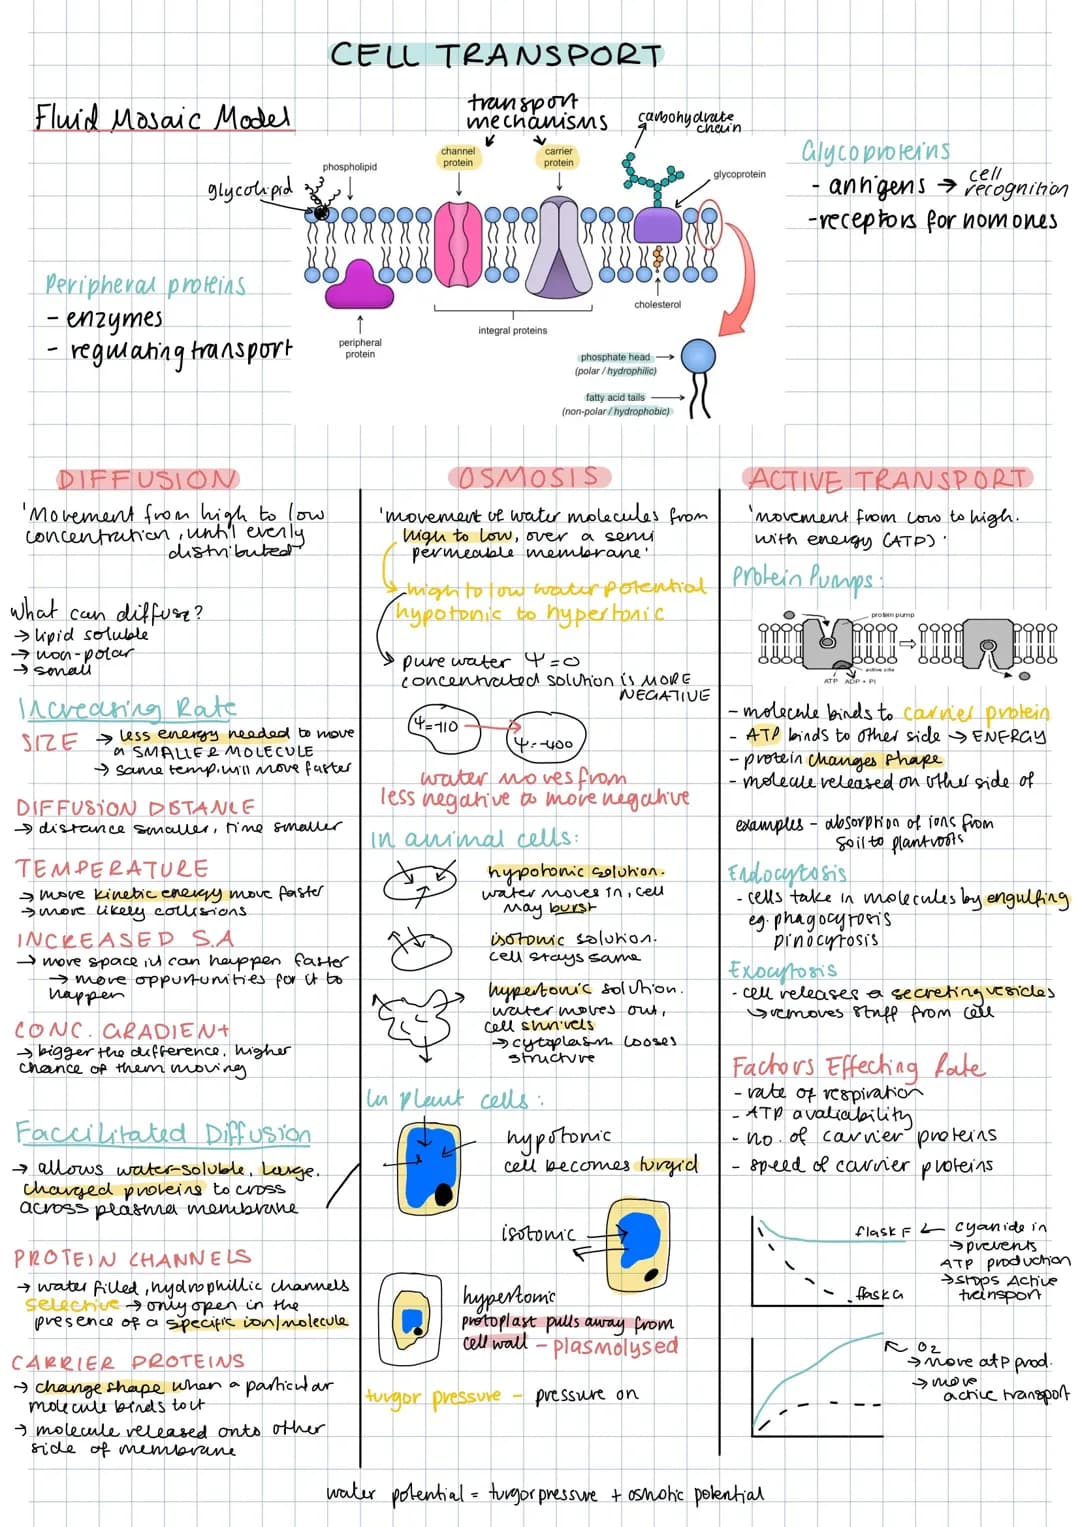 CELL TRANSPORT
Fluid Mosaic Model
transport
mechanisms
carbohydrate
chain
channel
protein
carrier
protein
phospholipid
glycolipid
glycoprotein
Glycoproteins
- antigens → cell
recognition
- receptors for homones
Peripheral proteins
- enzymes
- regulating transport
peripheral
protein
integral proteins
cholesterol
phosphate head
(polar / hydrophilic)
fatty acid tails
(non-polar / hydrophobic)
DIFFUSION
'Movement from high to low
concentration, until evenly
distributed'
What can diffuse?
→ lipid soluble
→ non-polar
→ small
Increasing Rate
SIZE → less energy needed to move
a SMALLER MOLECULE
→ same temp. will move faster
DIFFUSION DISTANCE
→ distance smaller, time smaller
TEMPERATURE
→ more kinetic energy move faster
→ more likely collisions
INCREASED S.A
→ more space it can happen faster
→ more oppurtunities for it to
happen
CONC. GRADIENT
→ bigger the difference, higher
chance of them moving
Faccilitated Diffusion
→ allows water-soluble, large,
charged proteins to cross
across plasma membrane
PROTEIN CHANNELS
→ water filled, hydrophillic channels
selective → only open in the
presence of a specific ion/molecule
CARRIER PROTEINS
→ change shape when a particular
molecule binds to it
→ molecule released onto other
side of membrane
OSMOSIS
'movement of water molecules from
high to low, over a semi
permeable membrane'
high to low water potential
hypotonic to hypertonic
pure water Ψ=0
concentrated solution is MORE
NEGATIVE
Ψ=-110
Ψ=-400
water moves from
less negative to more negative
In animal cells:
hypotonic solution.
water moves in, cell
may burst
isotonic solution.
cell stays same
hypertonic solution.
water moves out,
cell shrivels
→ cytoplasm looses
structure
In plant cells:
hypotonic
cell becomes turgid
isotonic
hypertonic
protoplast pulls away from
cell wall - plasmolysed
turgor pressure - pressure on
ACTIVE TRANSPORT
'movement from low to high.
with energy (ATP)'
Protein Pumps:
protein pump
active site
ATP ADP + Pi
- molecule binds to carrier protein
- ATP binds to other side → ENERGY
- protein changes shape
- molecule released on other side of
examples - absorption of ions from
soil to plant roots
Endocytosis
- cells take in molecules by engulfing
eg. phagocytosis
pinocytosis
Exocytosis
- cell releases a secreting vesicles
↳ removes stuff from cell
Factors Effecting Rate
- rate of respiration
- ATP avaliability
- no. of carrier proteins
- speed of carrier proteins
flask F ← cyanide in
→ prevents
ATP production
→ stops Active
transport
flask G
O2
→ more atp prod.
→ more
active transport
water potential = turgor pressure + osmotic potential